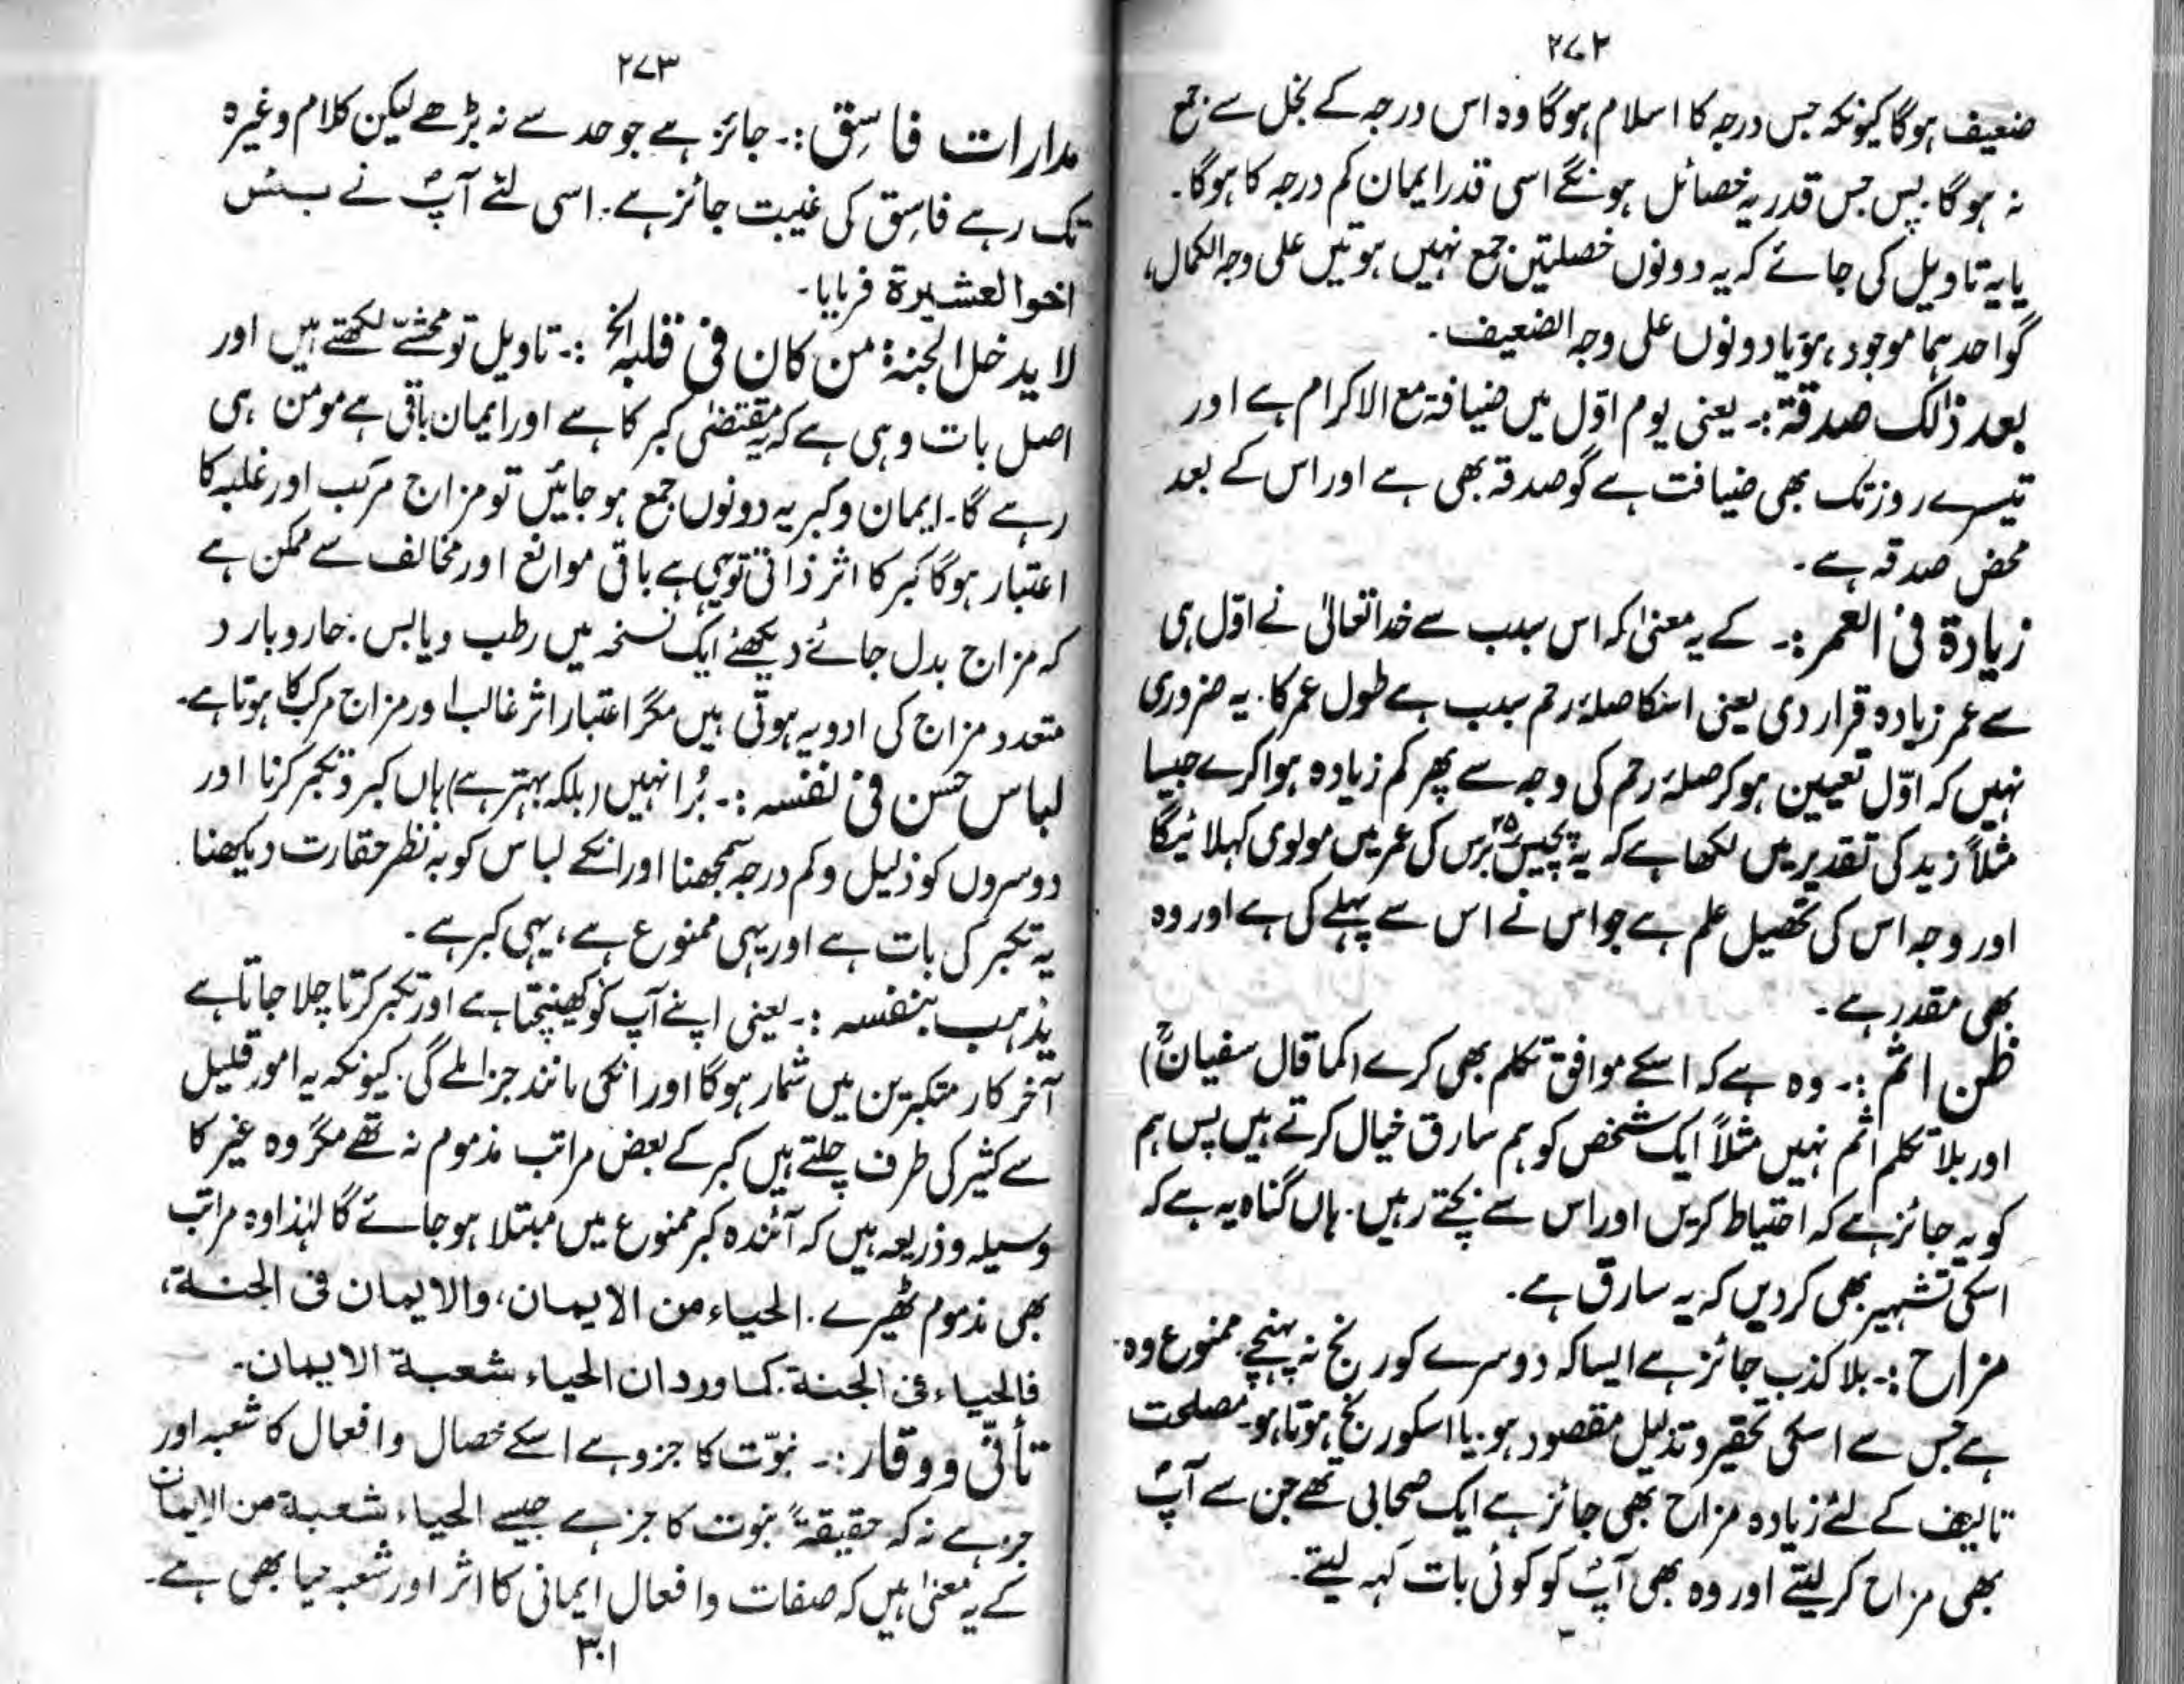 ۲۷۲
ضعیف ہوگا کیونکہ جس درجہ کا اسلام ہوگا وہ اس درجہ کے بخل سے جمع
نہ ہوگا۔ پس جس قدر یہ خصائل ہونگے اسی قدر ایمان کم درجہ کا ہوگا۔
یا یہ تاویل کی جائے کہ یہ دونوں خصلتیں جمع نہیں ہوتیں علی وجہ الکمال،
گو احدہما موجود ہو یا دونوں علی وجہ الضعیف۔
بعد ذٰلک صدقة:۔ یعنی یوم اوّل میں ضیافۃ مع الاکرام ہے اور
تیسرے روز تک بھی ضیافت ہے گو صدقہ بھی ہے اور اس کے بعد
محض صدقہ ہے۔
زیادة فی العمر:۔ کے یہ معنیٰ کہ اس سبب سے خدا تعالیٰ نے اوّل ہی
سے عمر زیادہ قرار دی یعنی اسکا صلۂ رحم سبب ہے طول عمر کا۔ یہ ضروری
نہیں کہ اوّل تعیین ہو کر صلۂ رحم کی وجہ سے پھر کم زیادہ ہوا کرے جیسا
مثلاً زید کی تقدیر میں لکھا ہے کہ یہ پچیس ۲۵ برس کی عمر میں مولوی کہلائیگا
اور وجہ اس کی تحصیل علم ہے جو اس نے اس سے پہلے کی ہے اور وہ
بھی مقدر ہے۔
ظن اثم:۔ وہ ہے کہ اسکے موافق تکلم بھی کرے (کما قال سفیانؒ)
اور بلا تکلم اثم نہیں مثلاً ایک شخص کو ہم سارق خیال کرتے ہیں پس ہم
کو یہ جائز ہے کہ احتیاط کریں اور اس سے بچتے رہیں۔ ہاں گناہ یہ ہے کہ
اسکی تشہیر بھی کردیں کہ یہ سارق ہے۔
مزاح:۔ بلا کذب جائز ہے ایسا کہ دوسرے کو رنج نہ پہنچے۔ ممنوع وہ
ہے جس سے اسکی تحقیر و تذلیل مقصود ہو۔ یا اسکو رنج ہوتا ہو۔ مصلحت
تالیف کے لئے زیادہ مزاح بھی جائز ہے ایک صحابی تھے جن سے آپؐ
بھی مزاح کرلیتے اور وہ بھی آپؐ کو کوئی بات کہہ لیتے۔
۲۷۳
مدارات فاسِق:۔ جائز ہے جو حد سے نہ بڑھے لیکن کلام وغیرہ
تک رہے فاسِق کی غیبت جائز ہے۔ اسی لئے آپؐ نے بئس
اخوا لعشیرة فرمایا۔
لا یدخل الجنة من کان فی قلبه الخ:۔ تاویل تو محشّی لکھتے ہیں اور
اصل بات وہی ہے کہ یہ مقتضیٰ کبر کا ہے اور ایمان باقی ہے مومن ہی
رہے گا۔ ایمان و کبر یہ دونوں جمع ہوجائیں تو مزاج مرکب اور غلبہ کا
اعتبار ہوگا کبر کا اثر ذاتی تو یہی ہے باقی موانع اور مخالف سے ممکن ہے
کہ مزاج بدل جائے دیکھئے ایک نسخہ میں رطب و یابس۔ حار و بارد
متعدد مزاج کی ادویہ ہوتی ہیں مگر اعتبار اثر غالب اور مزاج مرکب کا ہوتا ہے۔
لباس حَسن فی نفسه:۔ بُرا نہیں (بلکہ بہتر ہے) ہاں کبر و تکبر کرنا اور
دوسروں کو ذلیل و کم درجہ سمجھنا اور انکے لباس کو بہ نظر حقارت دیکھنا
یہ تکبر کی بات ہے اور یہی ممنوع ہے، یہی کبر ہے۔
یذهب بنفسه:۔ یعنی اپنے آپ کو کھینچتا ہے اور تکبر کرتا چلا جاتا ہے
آخر کار متکبرین میں شمار ہوگا اور انکی مانند جزا ملے گی۔ کیونکہ یہ امور قلیل
سے کثیر کی طرف چلتے ہیں کبر کے بعض مراتب مذموم نہ تھے مگر وہ غیر کا
وسیلہ و ذریعہ ہیں کہ آئندہ کبر ممنوع میں مبتلا ہوجائے گا لہٰذا وہ مراتب
بھی مذموم ٹھیرے۔ الحیاء من الایمان، والایمان فی الجنة،
فالحیاء فی الجنة۔ کما ورد ان الحیاء شعبة الایمان۔
تأنّی و وقار:۔ نبوّت کا جزو ہے اسکے خصال و افعال کا شعبہ اور
جز ہے نہ کہ حقیقةً نبوت کا جز ہے جیسے الحیاء شعبة من الایمان
کے یہ معنیٰ ہیں کہ صفات و افعال ایمانی کا اثر اور شعبہ حیا بھی ہے۔
۳۰۱